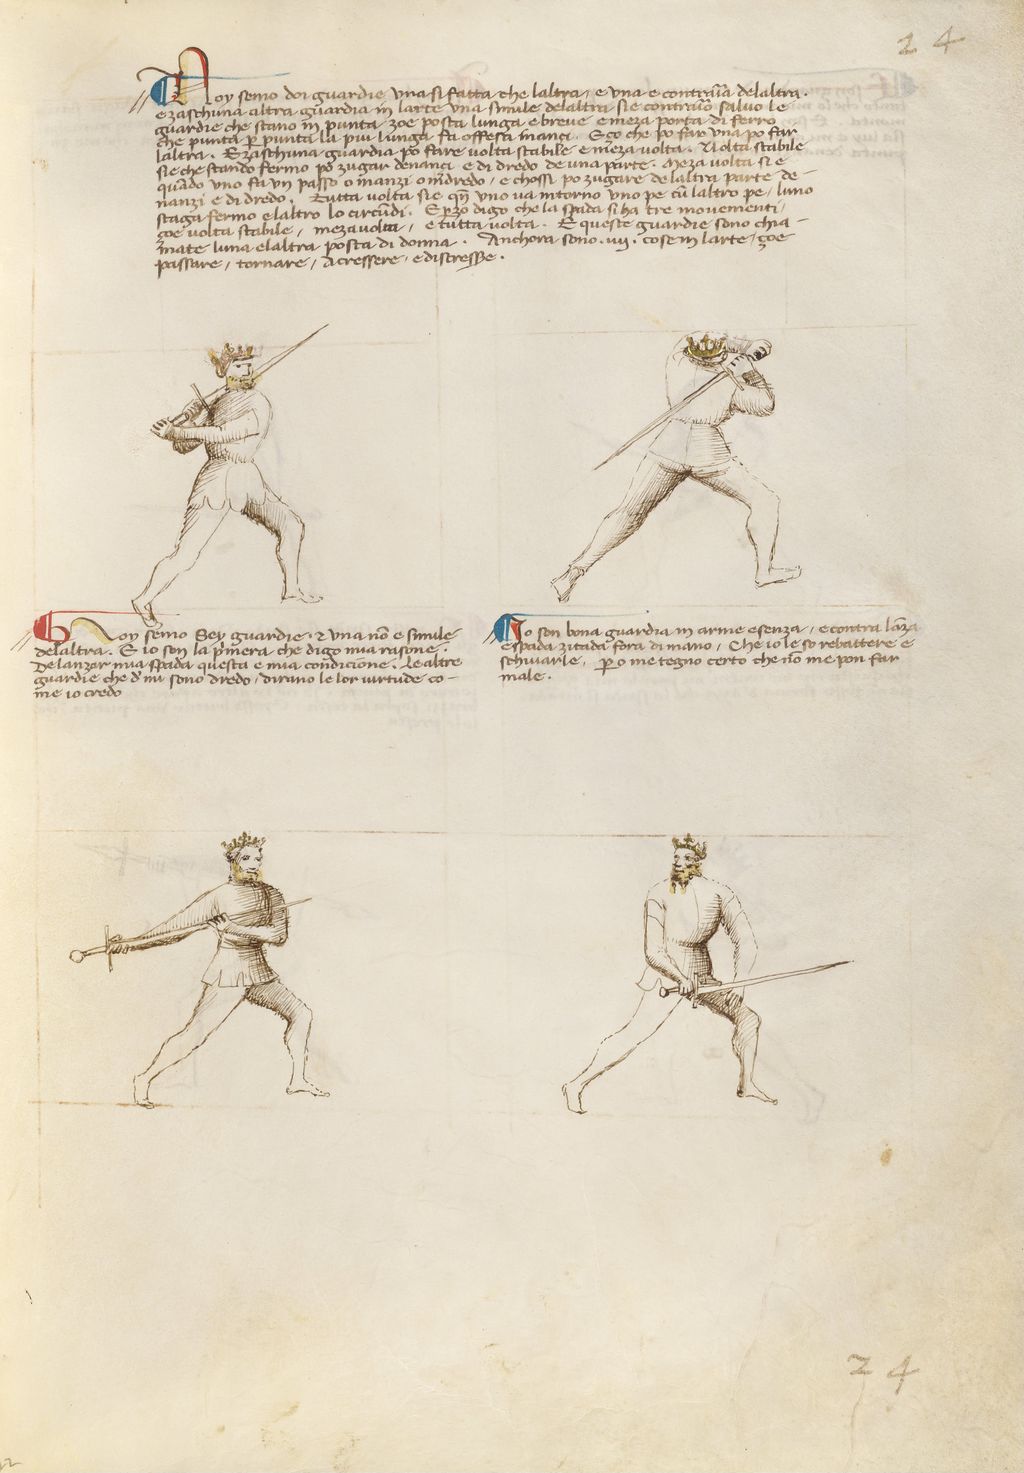 24
Noy semo doi guardie una si fatta che laltra, e una e contraria delaltra.
e zaschuna altra guardia in larte una simile delaltra sie contrario salvo le
guardie che stano in punta, zoe posta lunga e breve e meza porta di ferro
che punta per punta la piu lunga fa offesa inanci. E zo che po far una po far
laltra. E zaschuna guardia po fare volta stabile e meza volta. Volta stabile
sie che stando fermo po zugar denanci e di dredo de una parte. Meza volta si e
quando uno fa un passo o inanzi o indredo, e chossi po zugare de laltra parte de-
nanzi e di dredo. Tutta volta sie quando uno va intorno uno pe cum laltro pe, luno
staga fermo e laltro lo circundi. E perzo digo che la spada si ha tre movementi,
zoe volta stabile, meza volta, e tutta volta. E queste guardie sono chia-
mate luna e laltra posta di donna. Anchora sono .iiij. cose in larte, zoe
passare, tornare, acressere, e discressere.
Noy semo Sey guardie, & una non e simile
delaltra. E io son la primera che digo mia rasone.
De lanzar mia spada questa e mia condicione. Le altre
guardie che de mi sono dredo, dirano le lor virtude co-
me io credo
Io son bona guardia in arme e senza, e contra lanza
e spada zitada fora di mano, Che io le so rebattere e
schivarle, per o me tegno certo che non me pon far
male.
24